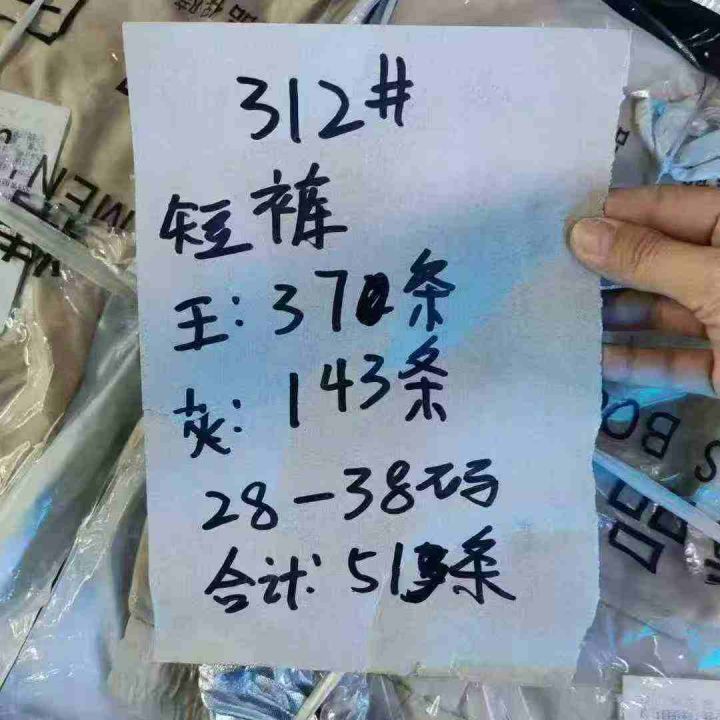 312#
短裤
王:370条
灰:143条
28-38码
合计:513条
MEN
S BO
品